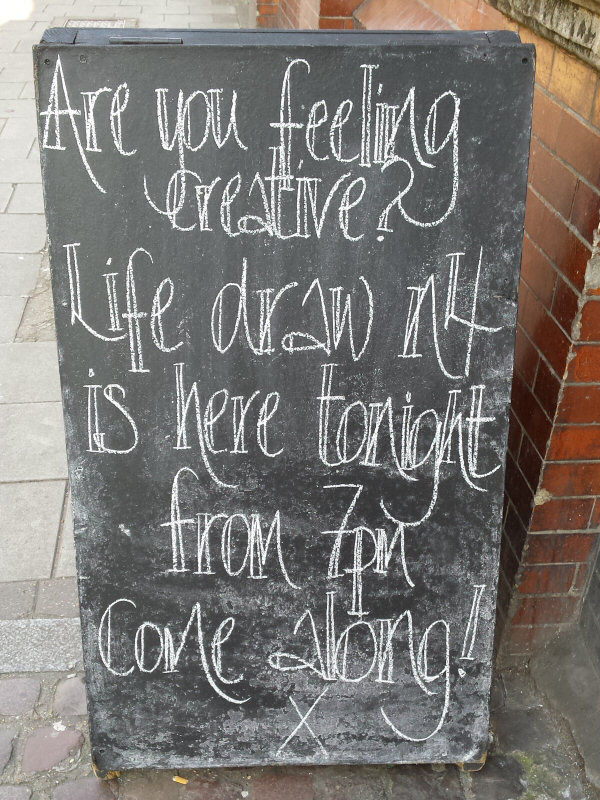 Are you feeling
creative?
Life draw n4
is here tonight
from 7pm
Come along!
X